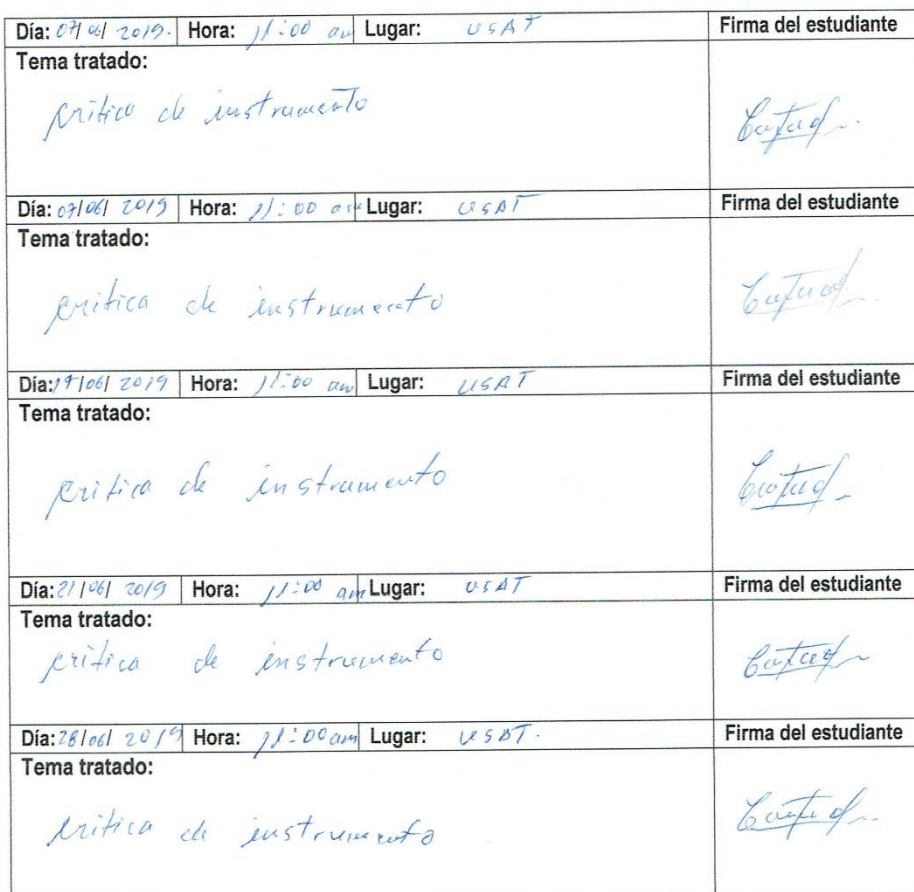 Día: 07/06/2019. Hora: 11:00 am Lugar: USAT Firma del estudiante
Tema tratado:
crítica de instrumento
Día: 07/06/2019 Hora: 11:00 am Lugar: USAT Firma del estudiante
Tema tratado:
crítica de instrumento
Día: /06/2019 Hora: 11:00 am Lugar: USAT Firma del estudiante
Tema tratado:
crítica de instrumento
Día: 21/06/2019 Hora: 11:00 am Lugar: USAT Firma del estudiante
Tema tratado:
crítica de instrumento
Día: 28/06/2019 Hora: 11:00 am Lugar: USAT. Firma del estudiante
Tema tratado:
crítica de instrumento